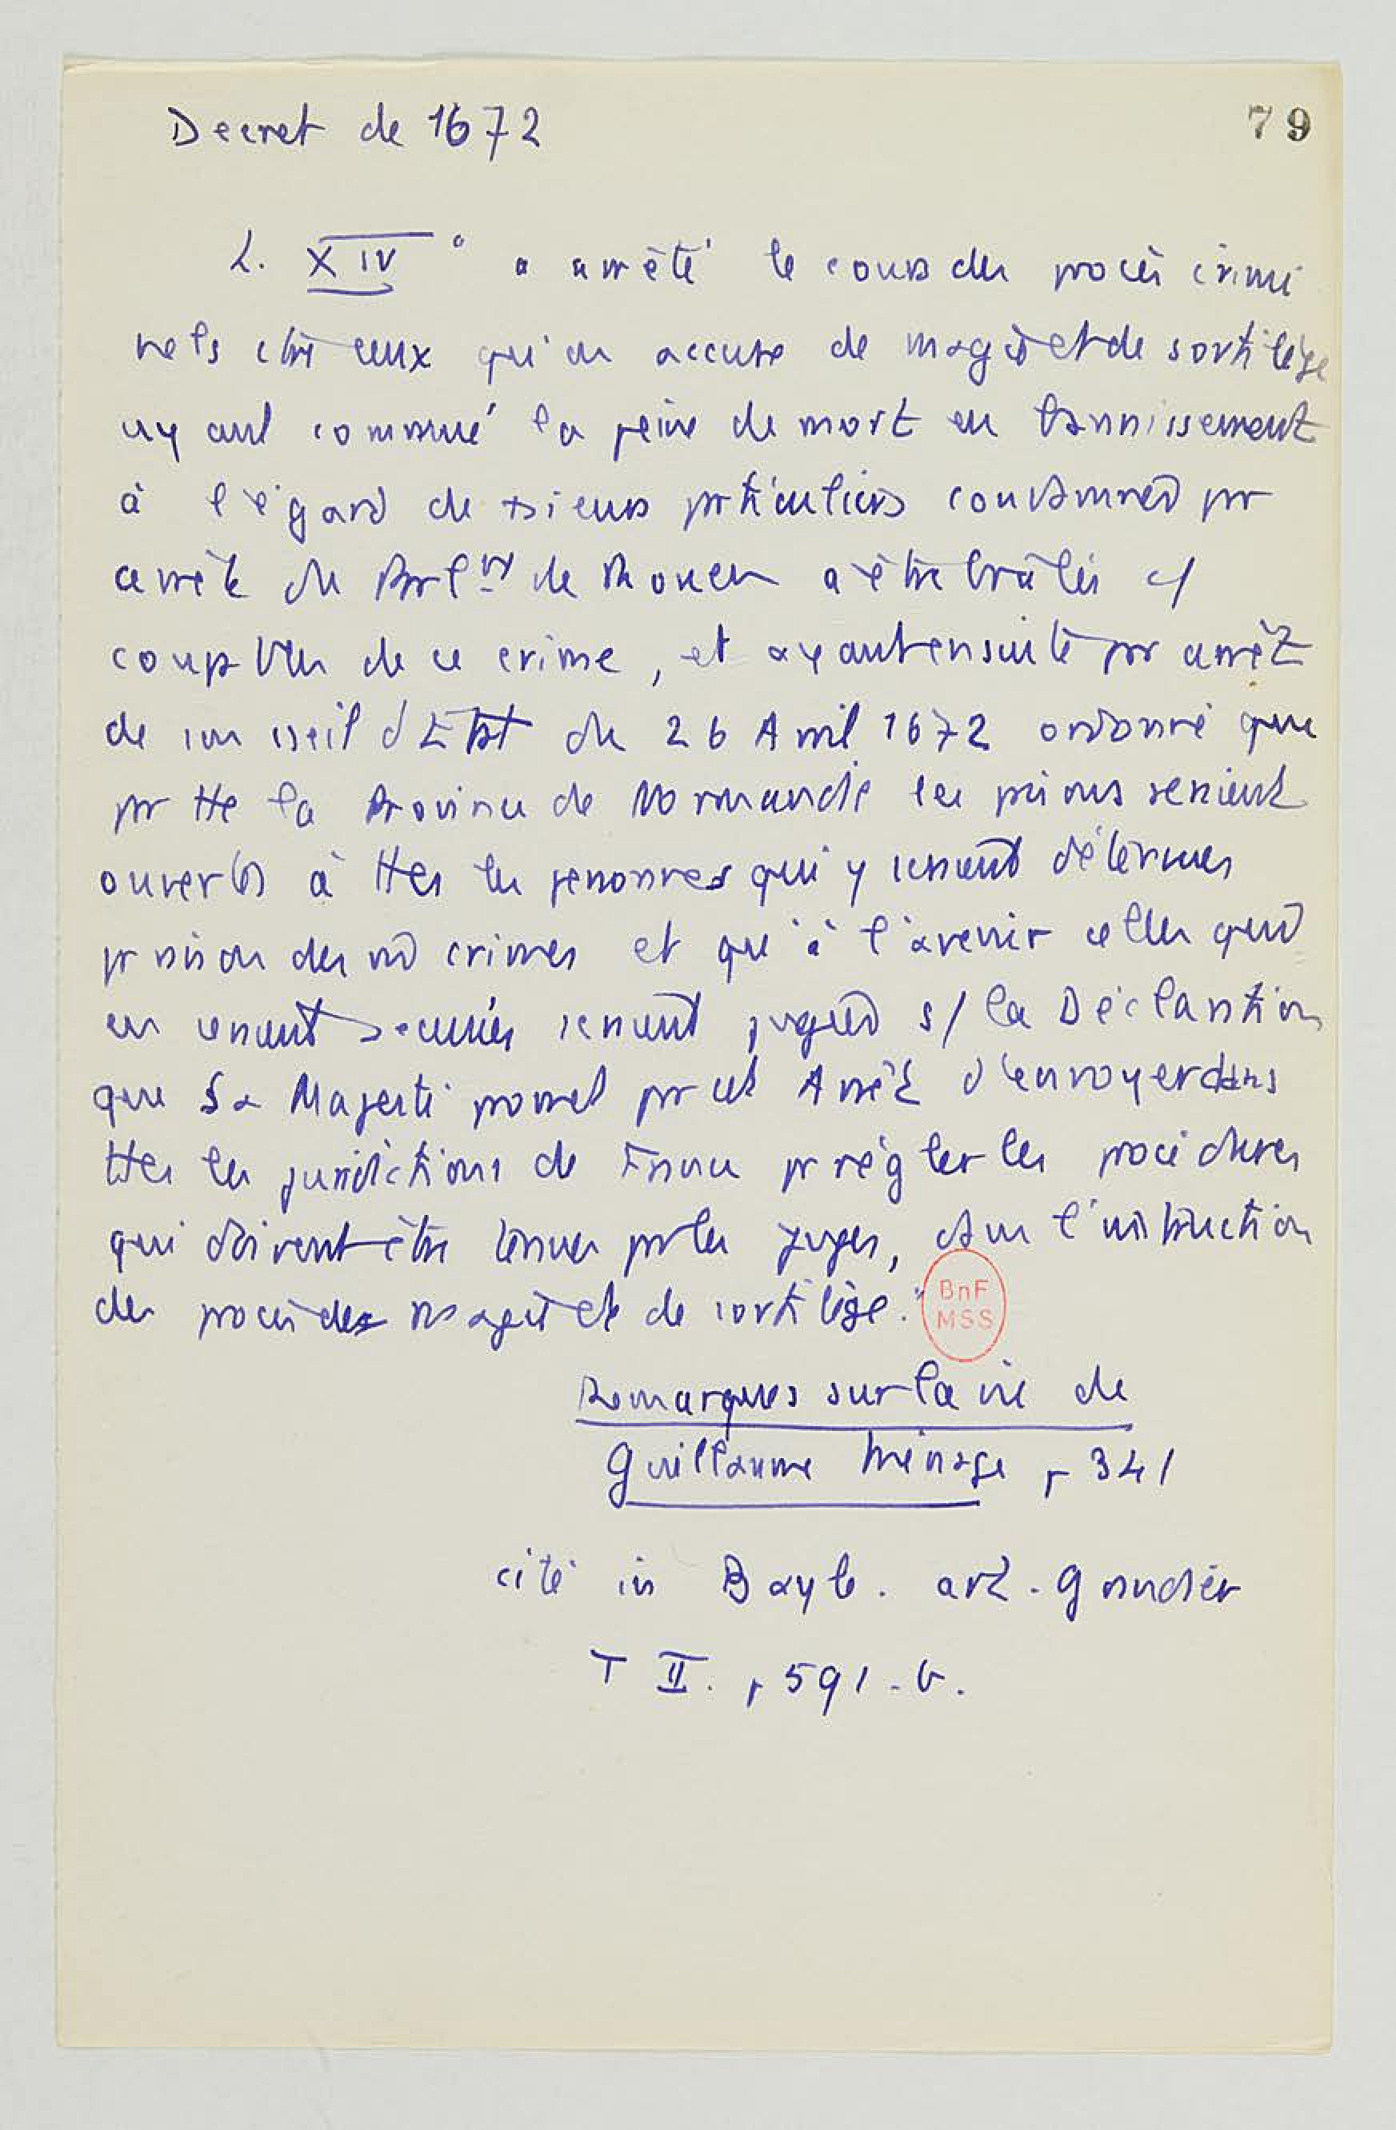 Decret de 1672
79
L. XIV " a arrêté le cours des procès crimi
nels ctre ceux qu'on accuse de magie et de sortilège
ayant commué la peine de mort en bannissement
à l'égard de +sieurs prticuliers condamnés pr
arrêt du Parlnt de Rouen a être brûlés c/
coupables de ce crime, et ayant ensuite pr arrêt
de son cseil d'Etat du 26 Avril 1672 ordonné que
pr tte la Province de Normandie les prisons seraient
ouvertes à ttes les personnes qui y seraient détenues
pr raison des m crimes et qu'à l'avenir celles qui
en seraient accusées seraient jugées s/ la Déclaration
que Sa Majesté promet pr cet Arrêt d'envoyer dans
ttes les juridictions de France pr régler les procédures
qui doivent être tenues pr les juges, dans l'instruction
des procès de magie et de sortilège."
BnF
MSS
Remarques sur la vie de
Guillaume Ménage, p 341
cité in Bayle. art. Grandier
T II. p 591-b.